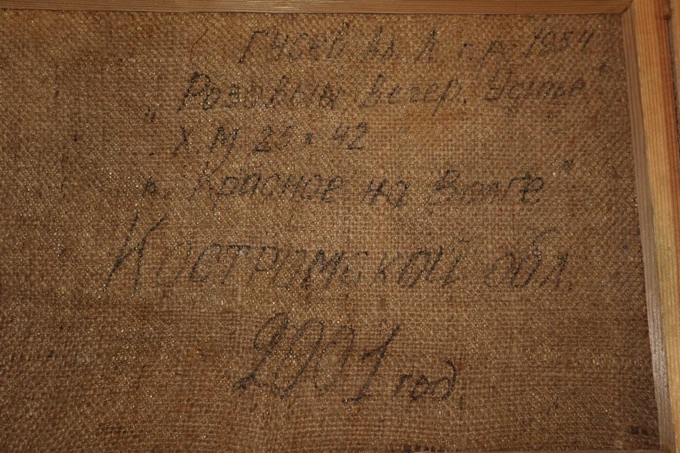 Гусев Вл. Л г.р. 1954
„Розовый вечер. Устье"
Х М 28 × 42
п. Красное на Волге"
Костромской обл.
2001 год